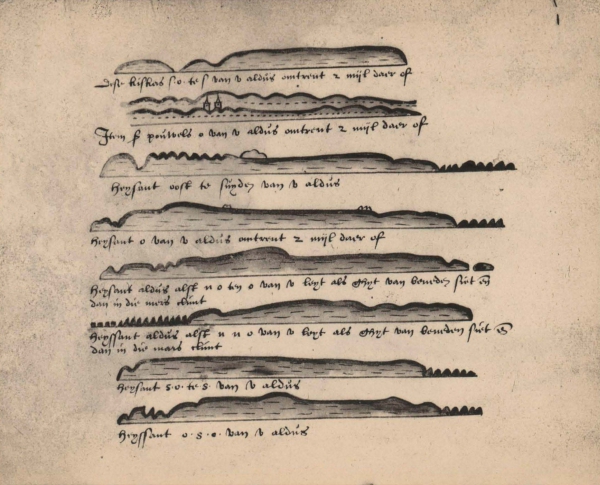 Dese kiskas s.o. te s van v aldus omtrent 2 mijl daer of
Item s pouwels o van v aldus omtrent 2 mijl daer of
heysant oost te suyden van v aldus
heysant o van v aldus omtrent 2 mijl daer of
heysant aldus alst n o ten o van v leyt als ghyt van beneden siet en
dan in die mers clunt
heyssant aldus alst n n o van v leyt als ghyt van beneden siet en
dan in die mars clunt
heyssant s.o. te s. van v aldus
heyssant o.s.o. van v aldus